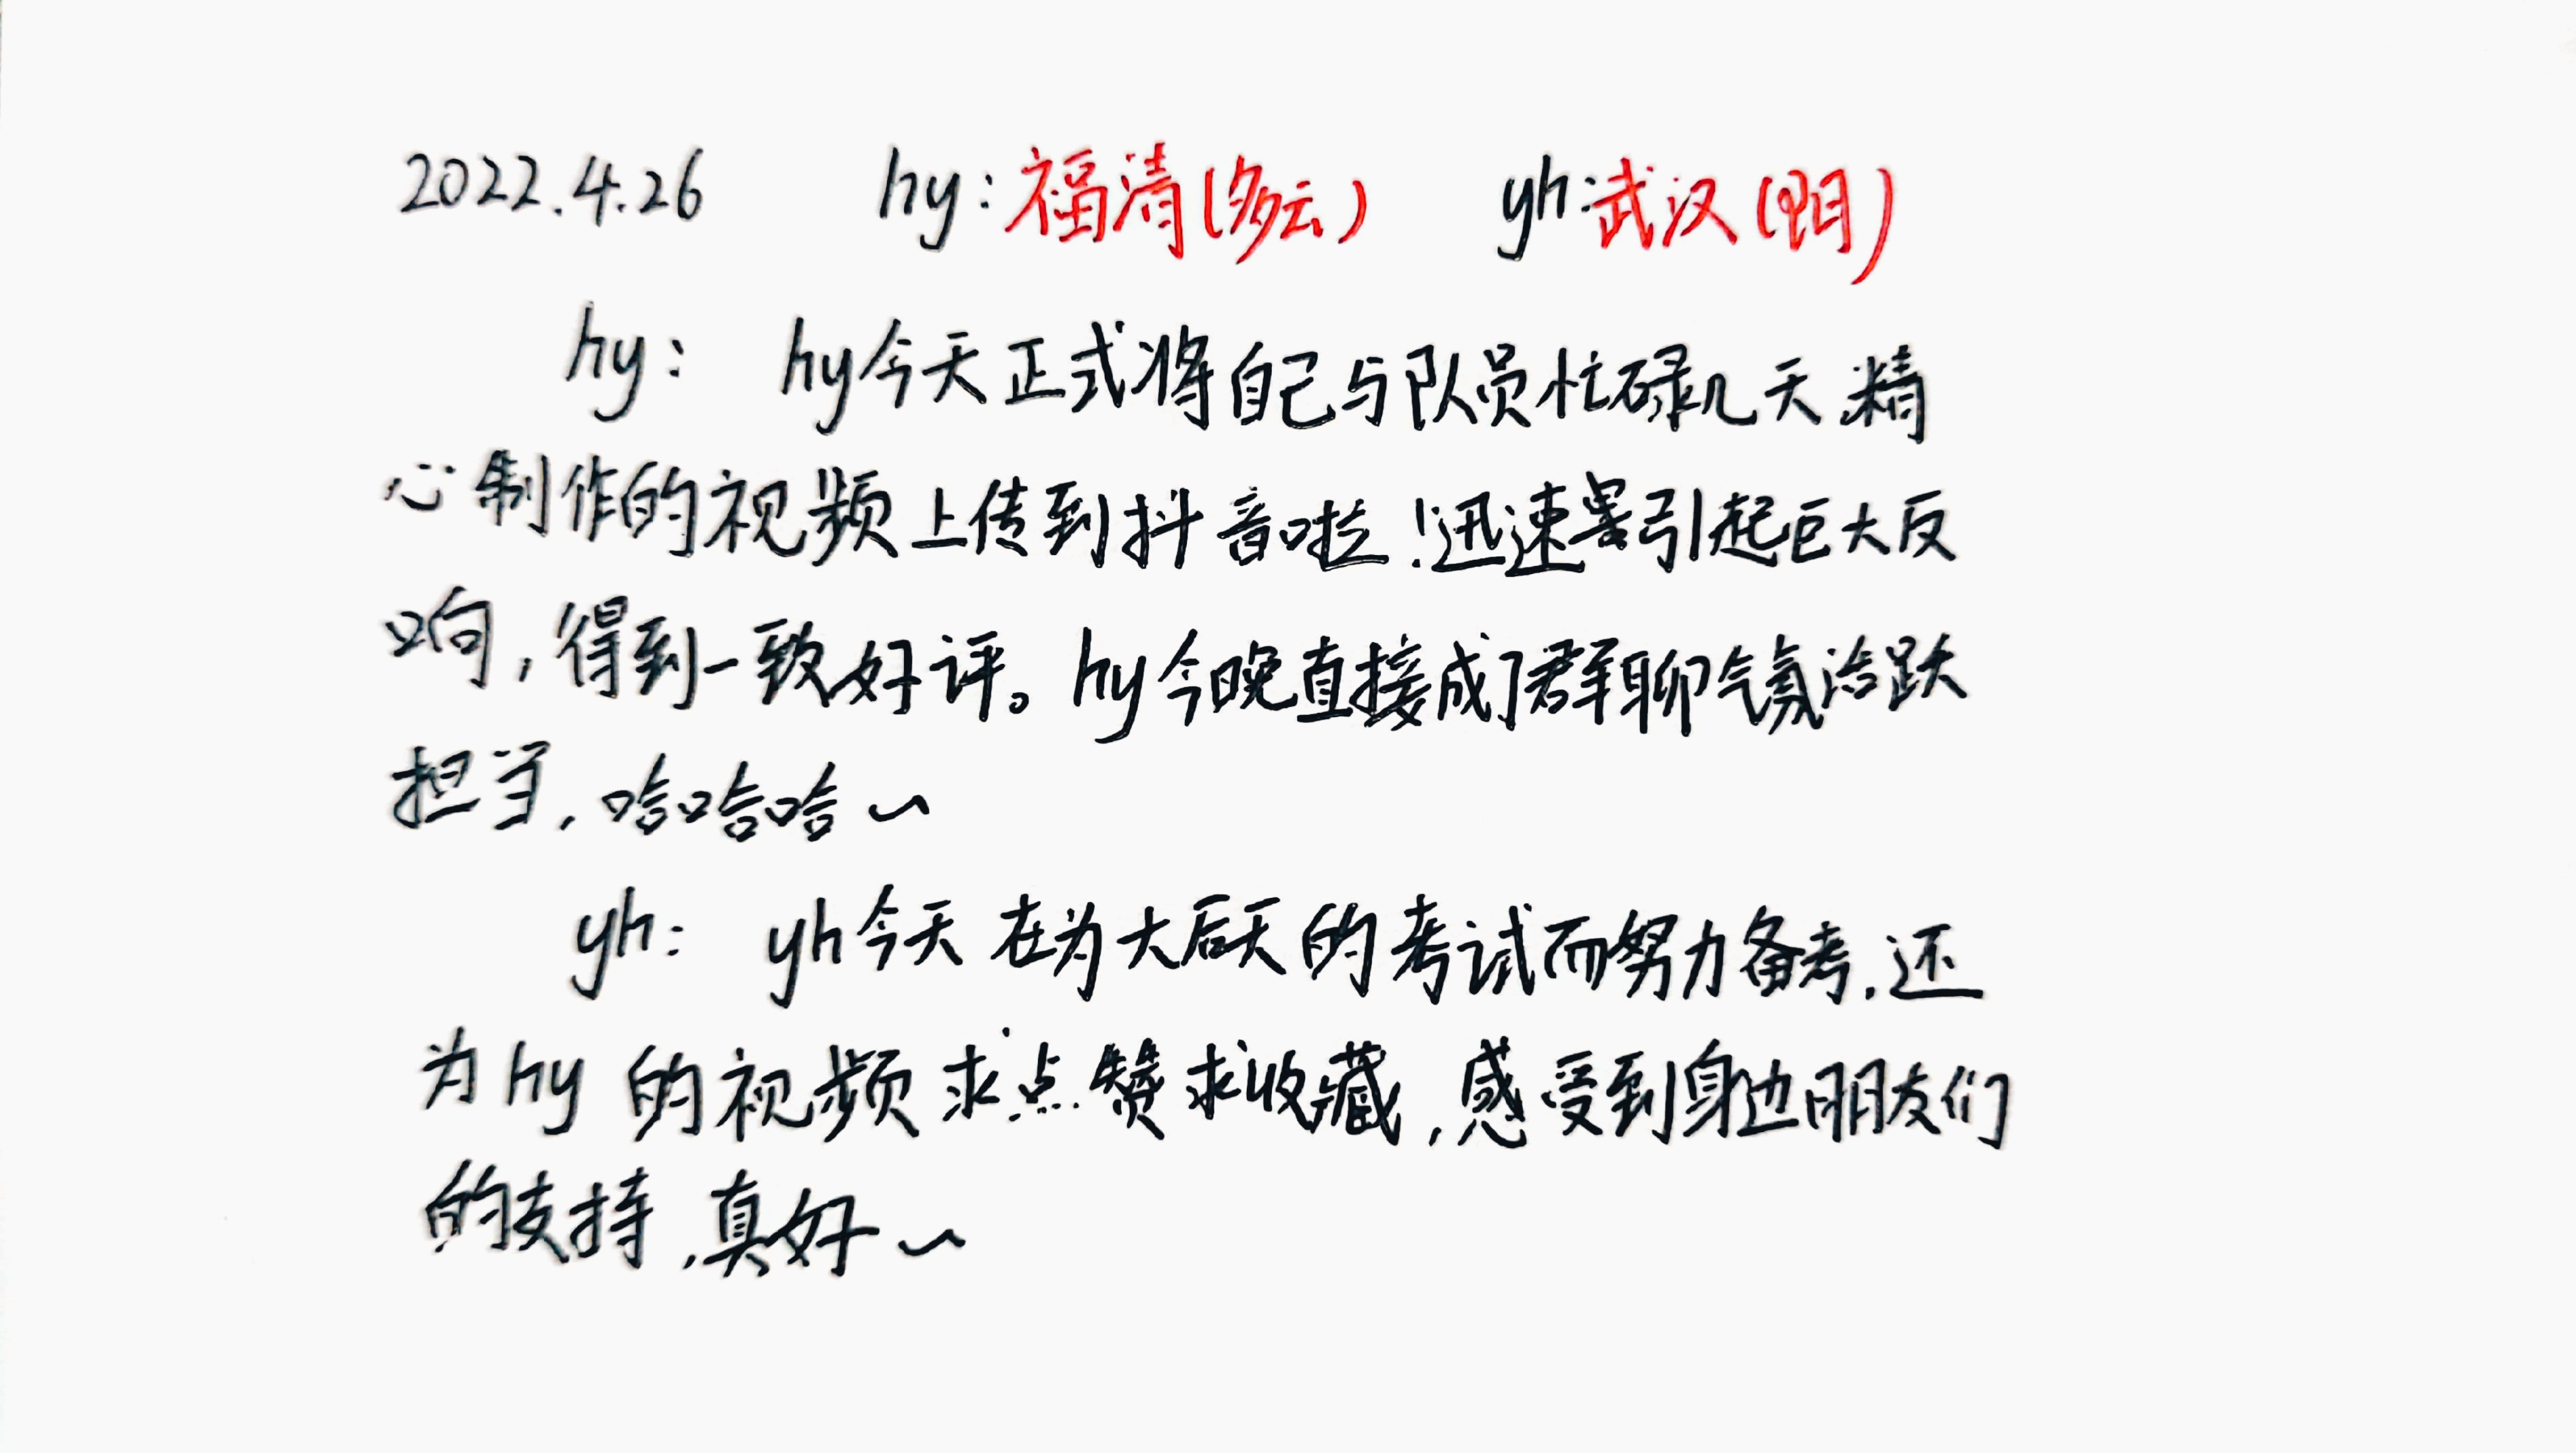 2022.4.26 hy:福清(多云) yh:武汉(阴)
hy: hy今天正式将自己与队员忙碌几天,精
心制作的视频上传到抖音啦!迅速引起巨大反
响,得到一致好评。hy今晚直接成了群聊气氛活跃
担当,哈哈哈~
yh: yh今天在为大后天的考试而努力备考,还
为hy的视频求点赞求收藏,感受到身边朋友们
的支持,真好~